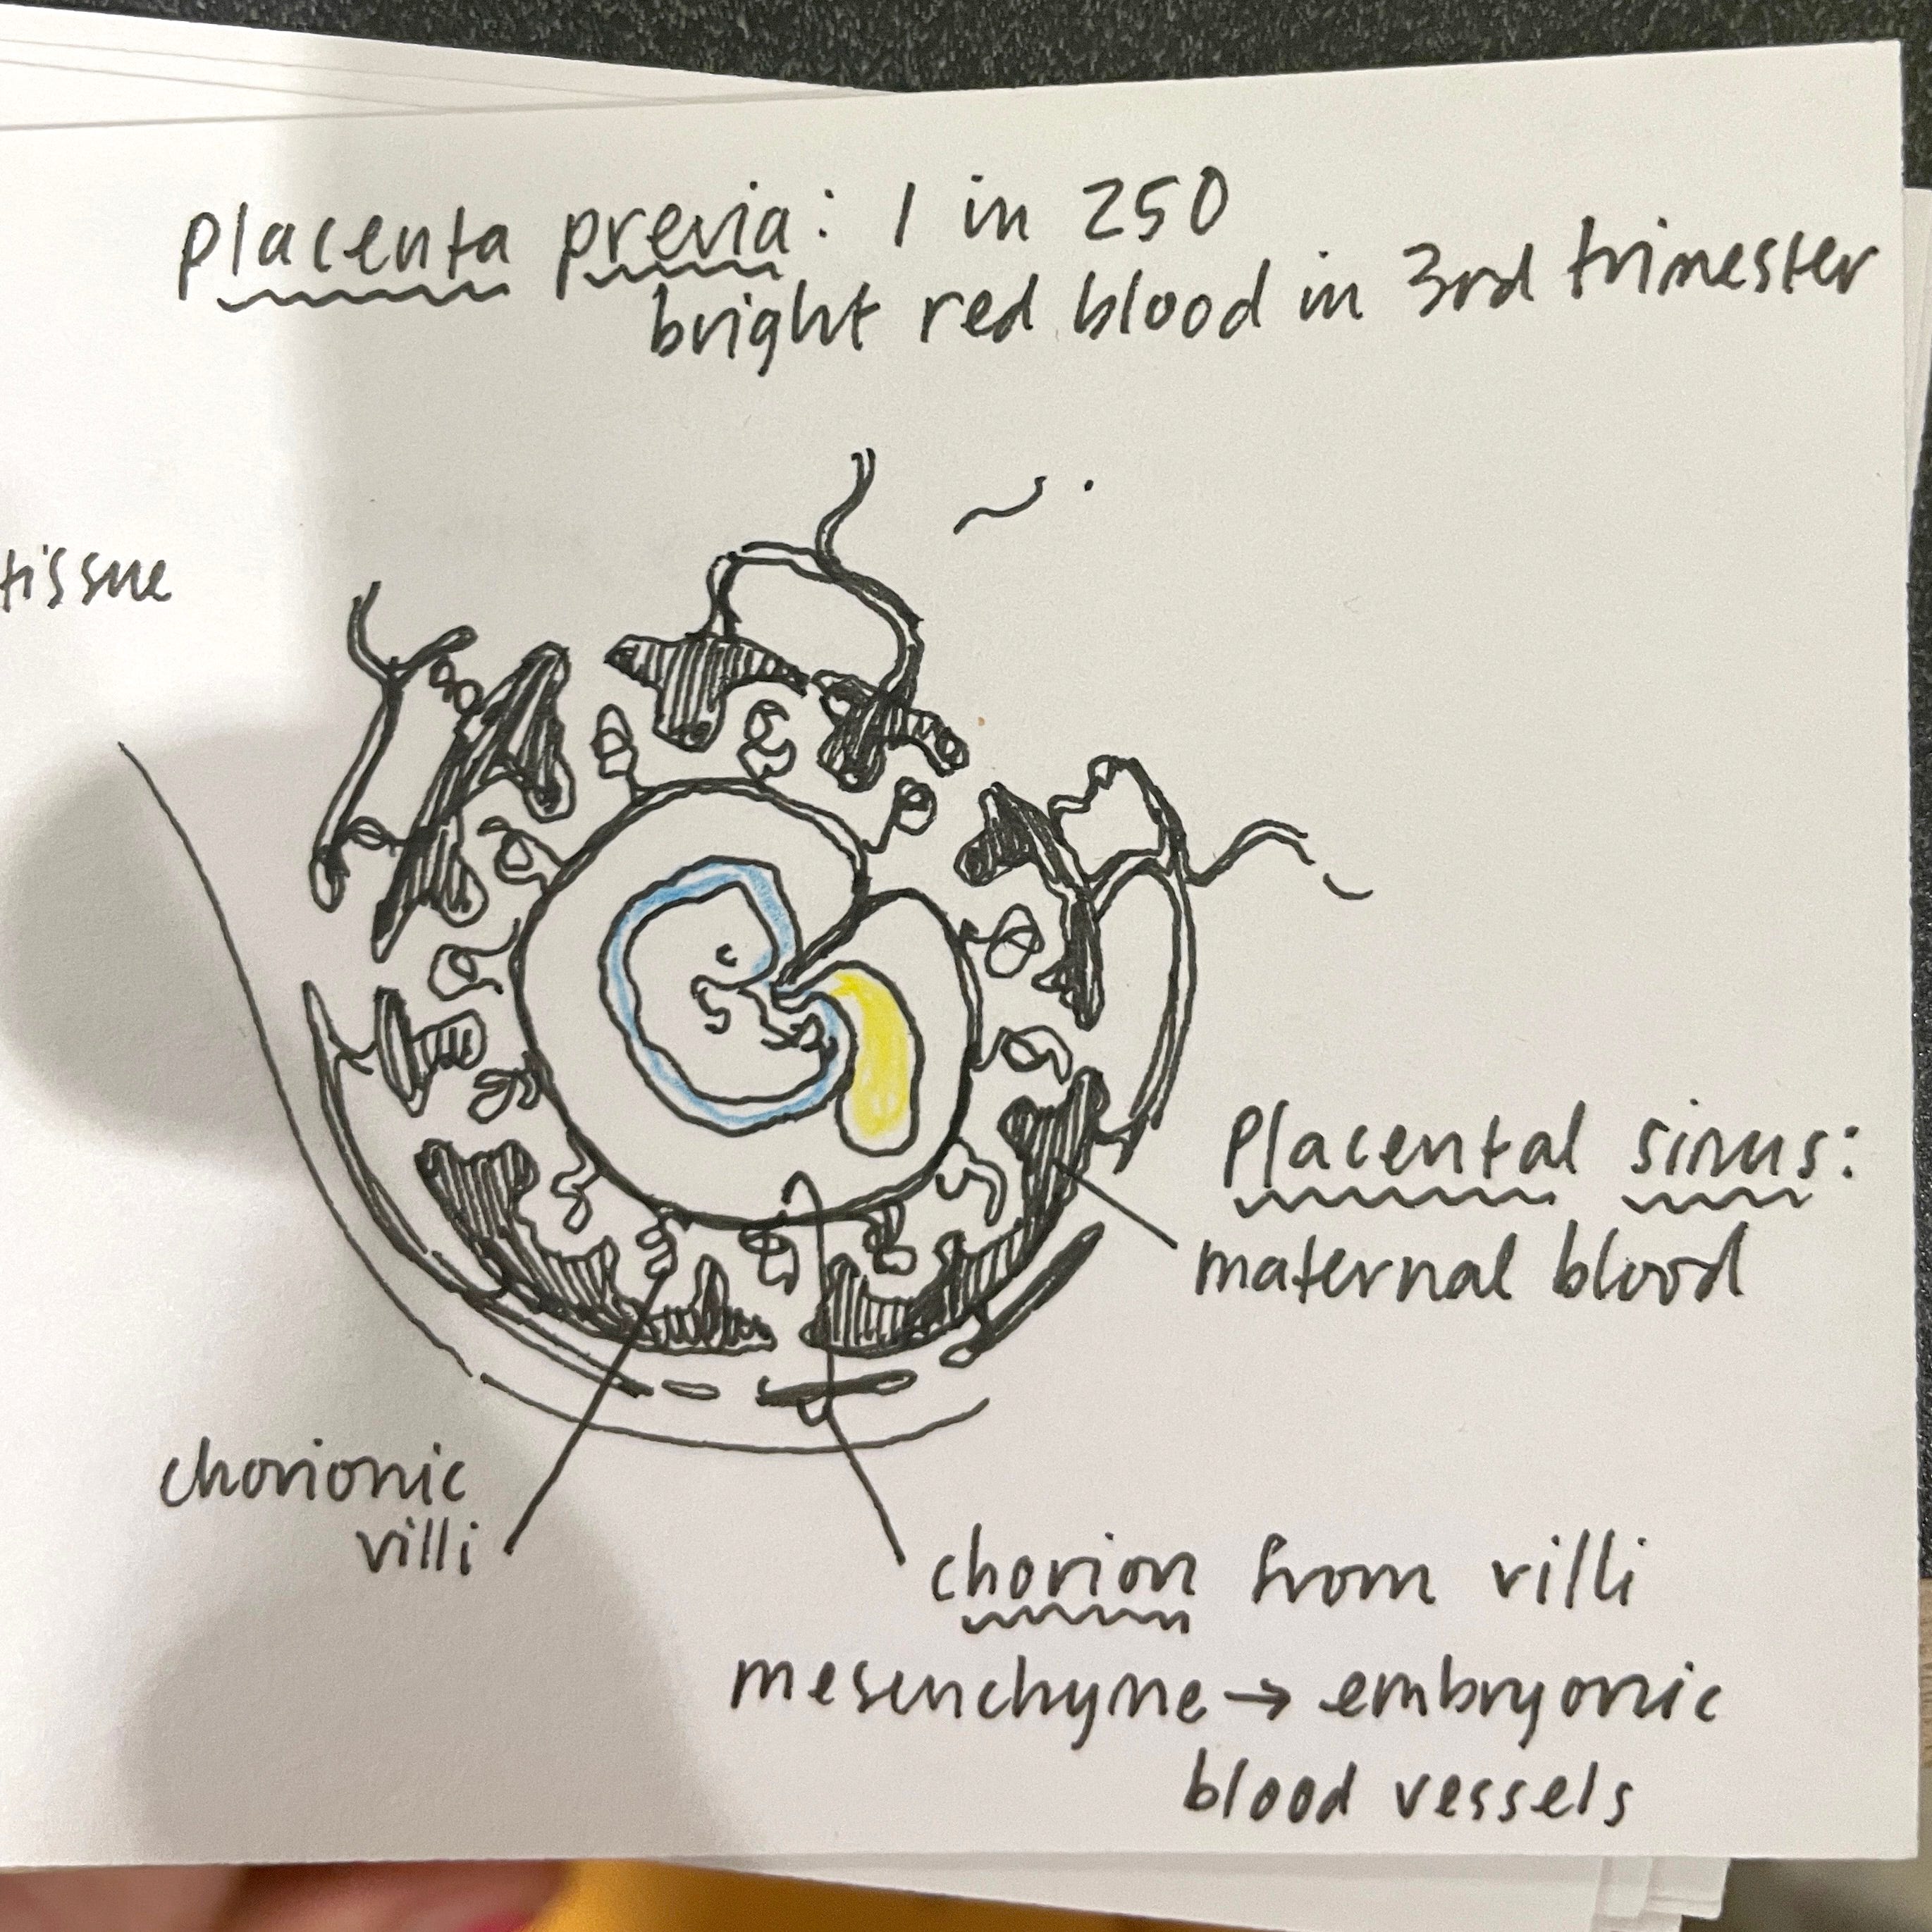 placenta previa: 1 in 250
bright red blood in 3rd trimester
tissue
placental sinus:
maternal blood
chorionic
villi
chorion from villi
mesenchyme → embryonic
blood vessels